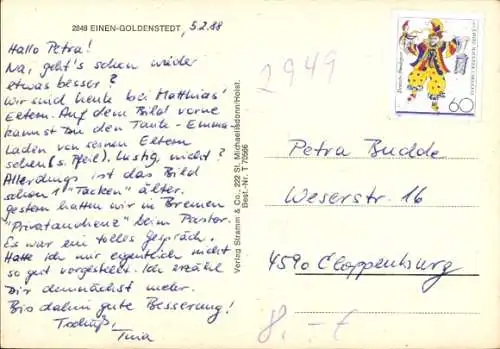 2849 EINEN-GOLDENSTEDT,
5.2.88
Hallo Petra!
Na, geht's schon wieder
etwas besser?
Wir sind heute bei Matthias'
Eltern. Auf dem Bild vorne
kannst Du den Tante-Emma
Laden von seinen Eltern
sehen (s. Pfeil). Lustig, nicht?
Allerdings ist das Bild
schon 1 "Tacken" älter.
Gestern hatten wir in Bremen
"Privataudienz" beim Pastor.
Es war ein tolles Gespräch.
Hatte ich mir eigentlich nicht
so gut vorgestellt. Ich erzähl
Dir demnächst mehr.
Bis dahin gute Besserung!
Tschüß,
Tina
Verlag Stramm & Co., 222 St. Michaelisdonn/Holst.
Best.-Nr. T 70566
2949
60
Petra Budde
Weserstr. 16
4590 Cloppenburg
8.- €